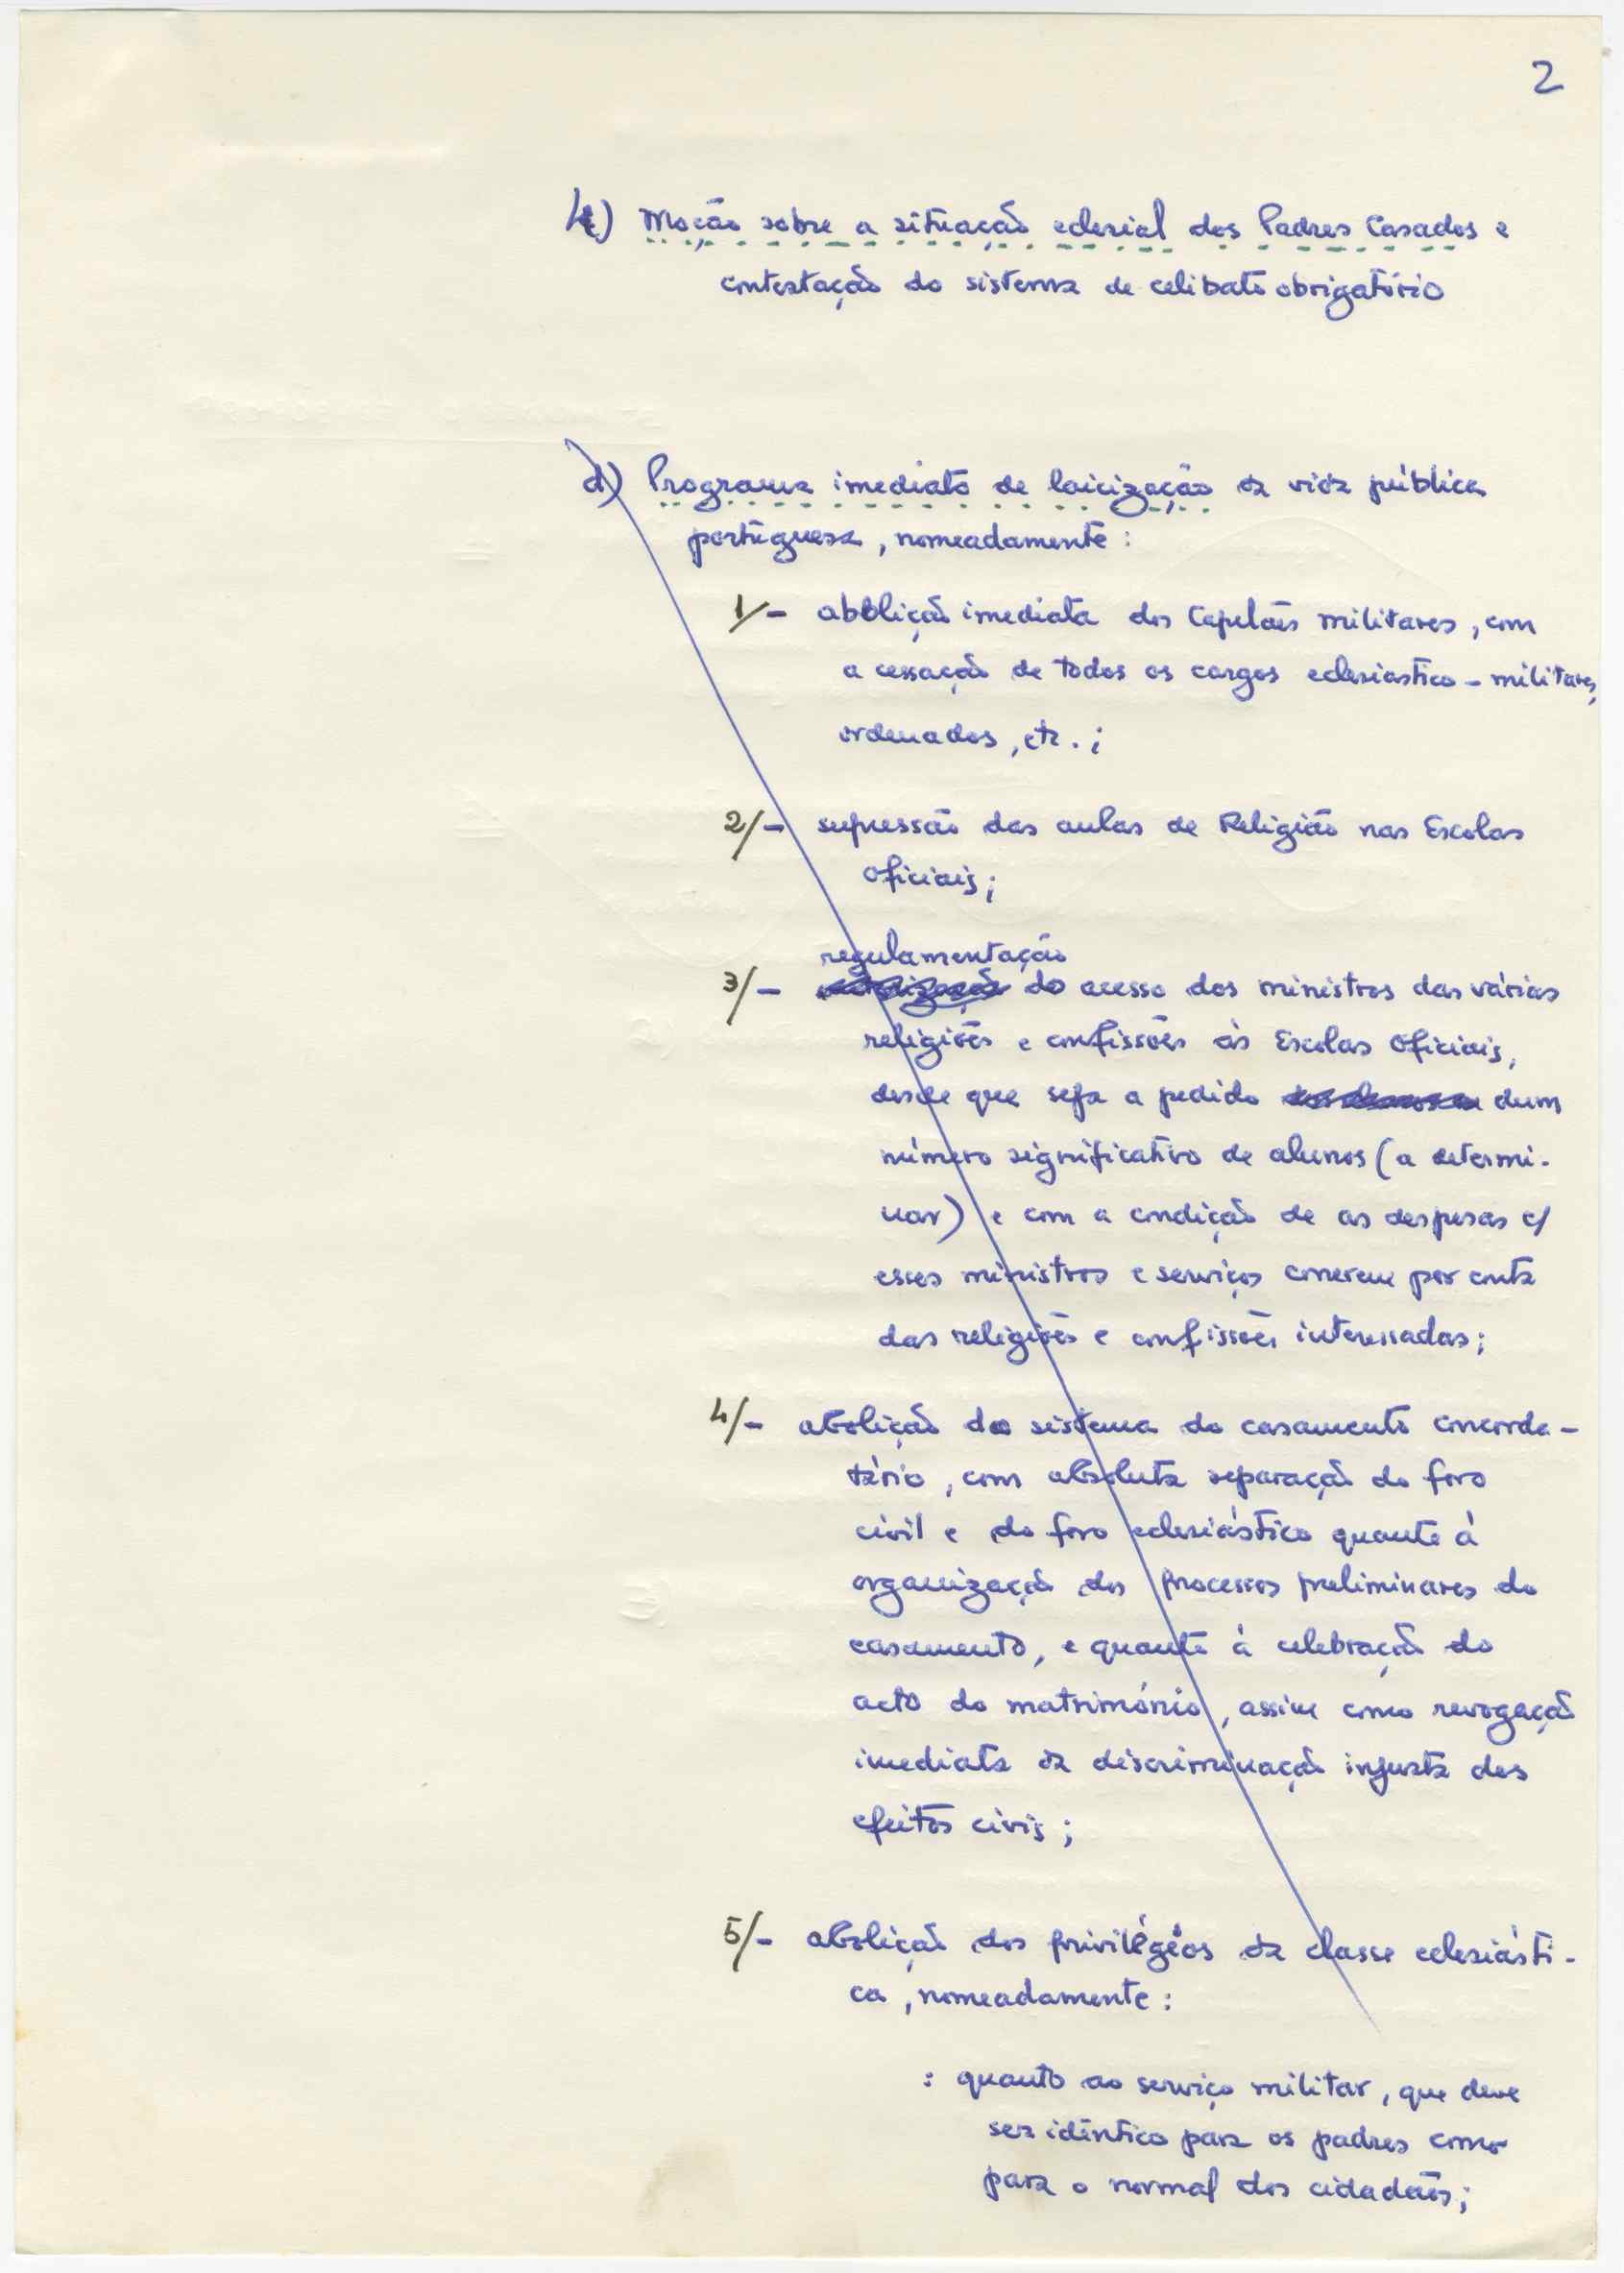 2
4) Moção sobre a situação eclesial dos Padres Casados e
contestação do sistema de celibato obrigatório
d) Programa imediato de laicização da vida pública
portuguesa, nomeadamente:
1/- abolição imediata dos Capelães militares, com
a cessação de todos os cargos eclesiástico-militares,
ordenados, etc.;
2/- supressão das aulas de Religião nas Escolas
Oficiais;
regulamentação
3/- do acesso dos ministros das várias
religiões e confissões às Escolas Oficiais,
desde que seja a pedido dum
número significativo de alunos (a determi-
nar) e com a condição de as despesas c/
esses ministros e serviços correrem por conta
das religiões e confissões interessadas;
4/- abolição do sistema do casamento concorda-
tário, com absoluta separação do foro
civil e do foro eclesiástico quanto à
organização dos processos preliminares do
casamento, e quanto à celebração do
acto do matrimónio, assim como revogação
imediata da discriminação injusta dos
efeitos civis;
5/- abolição dos privilégios da classe eclesiásti-
ca, nomeadamente:
: quanto ao serviço militar, que deve
ser idêntico para os padres como
para o normal dos cidadãos;